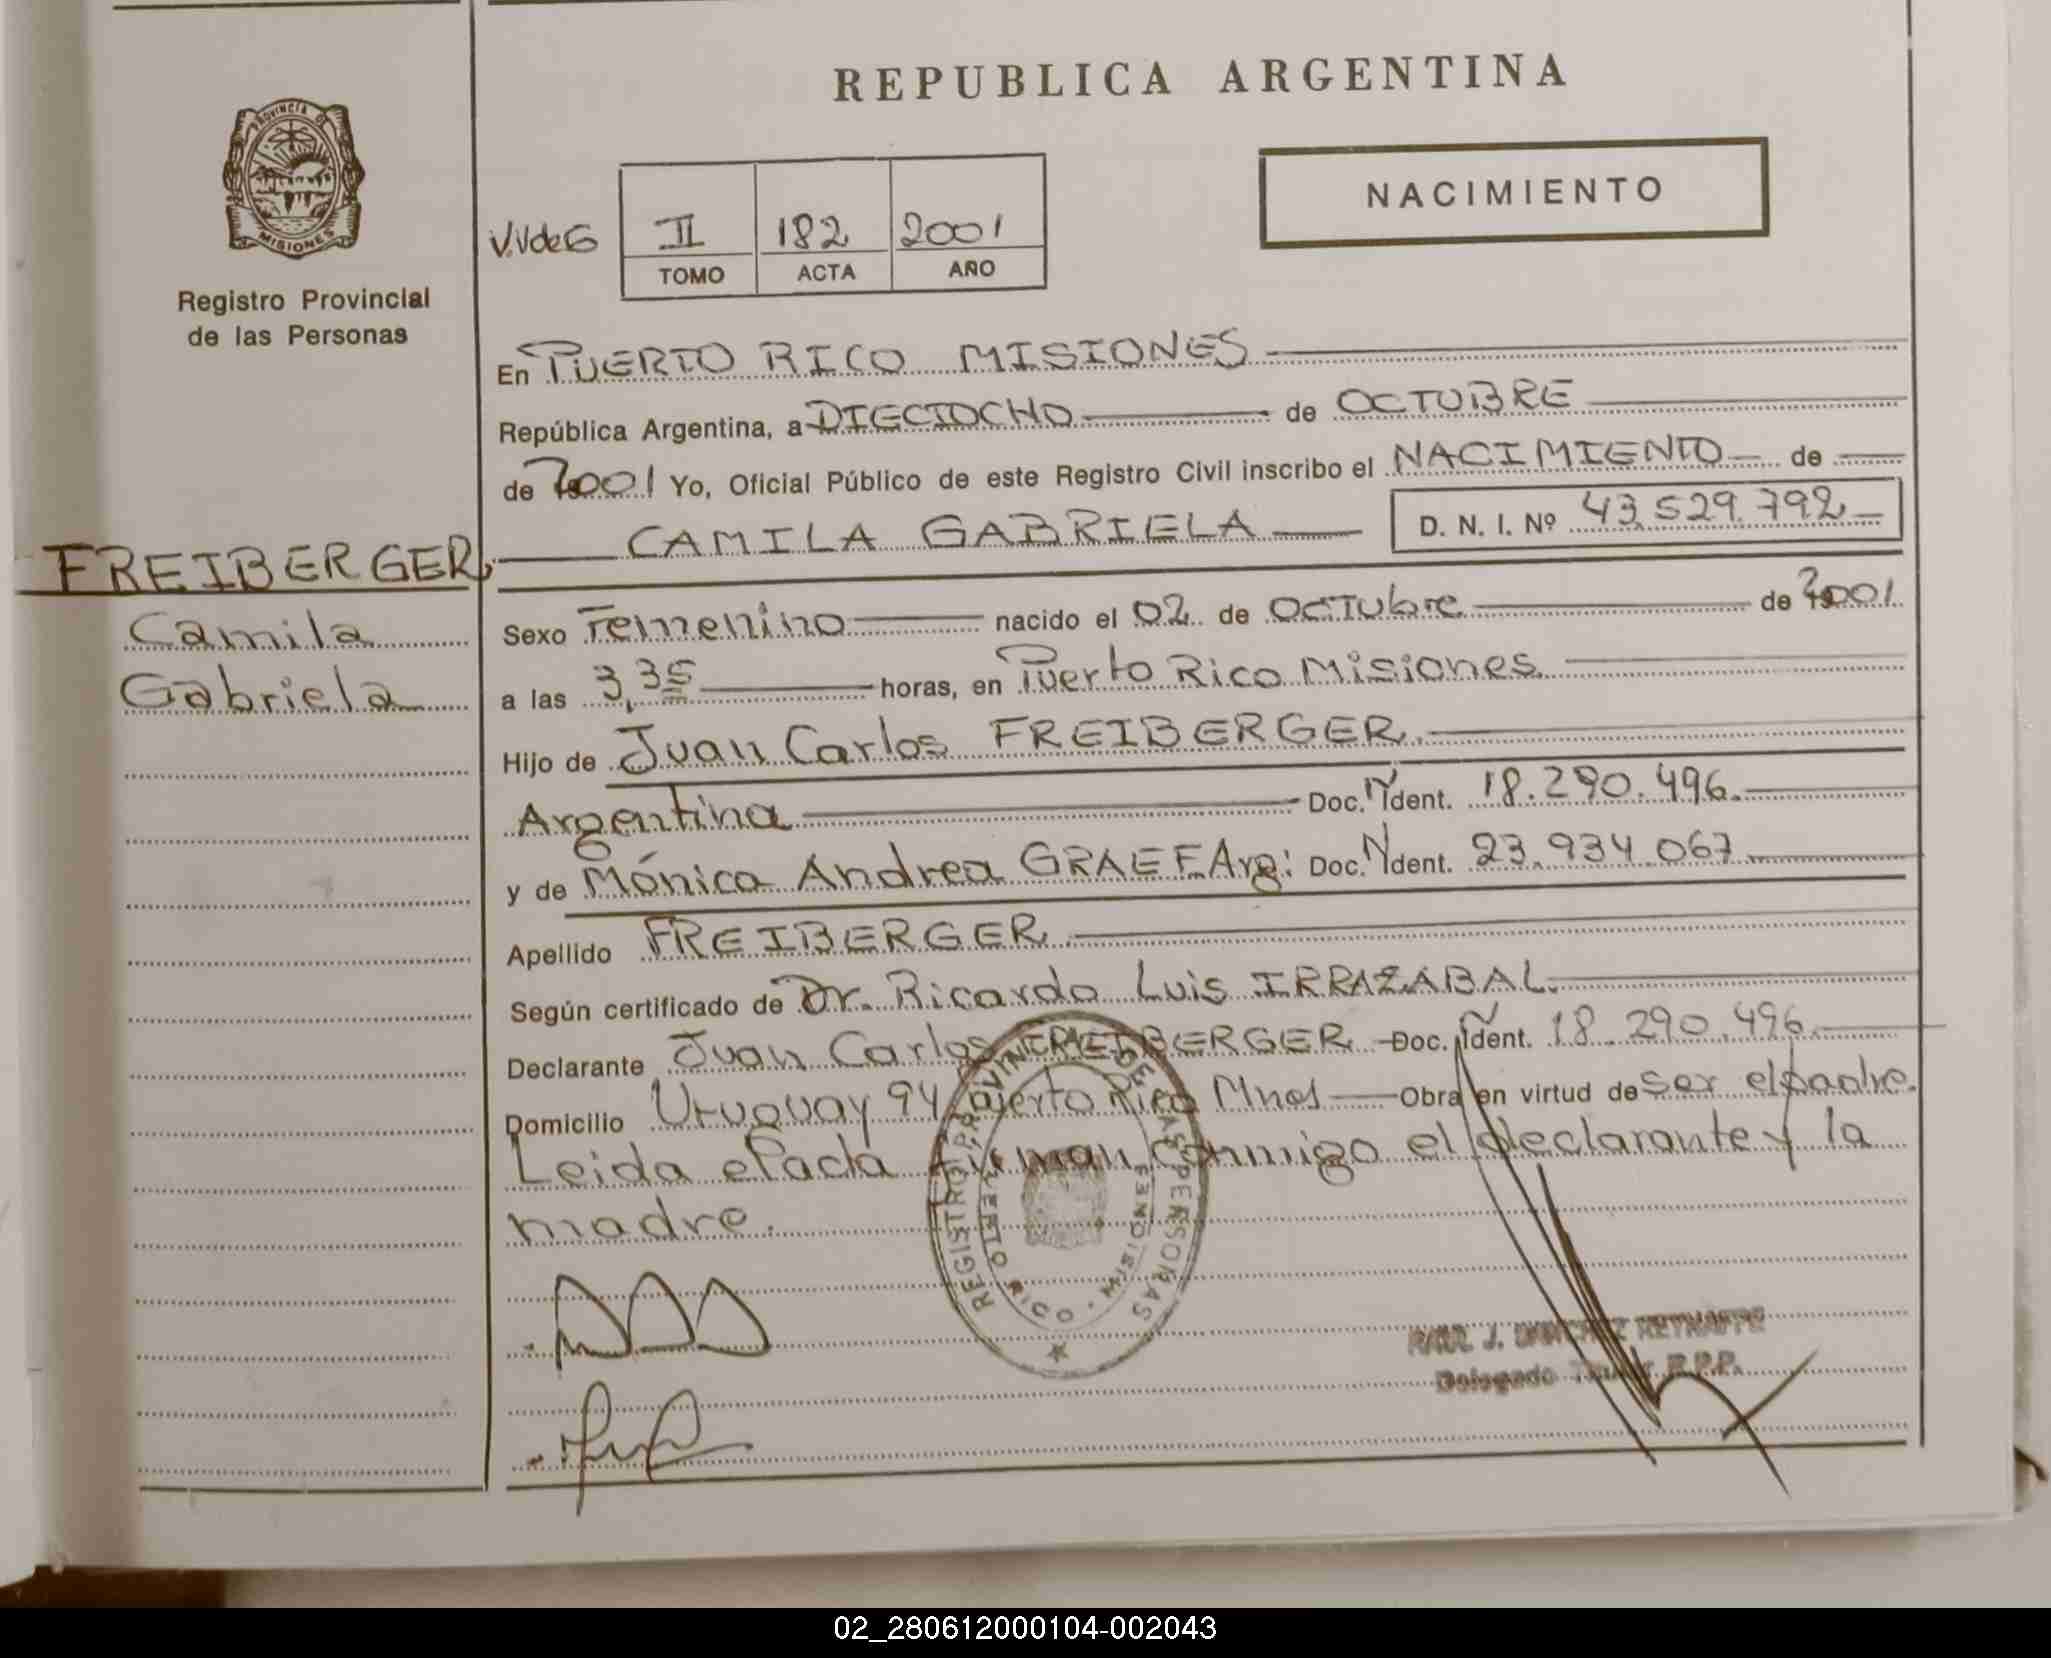 REPUBLICA ARGENTINA
PROVINCIA DE
MISIONES
Registro Provincial
de las Personas
V.VdeG
II 182 2001
TOMO ACTA AÑO
NACIMIENTO
En PUERTO RICO MISIONES
República Argentina, a DIECIOCHO de OCTUBRE
de 2001 Yo, Oficial Público de este Registro Civil inscribo el NACIMIENTO de
CAMILA GABRIELA D. N. I. Nº 43.529.792
FREIBERGER,
Camila
Gabriela
Sexo Femenino nacido el 02 de Octubre de 2001
a las 3,35 horas, en Puerto Rico Misiones
Hijo de Juan Carlos FREIBERGER.
Argentina Doc. Ident. 18.290.496.
y de Mónica Andrea GRAEF Arg: Doc. Ident. 23.934.067
Apellido FREIBERGER
Según certificado de Dr. Ricardo Luis IRRAZABAL.
Declarante Juan Carlos FREIBERGER Doc. Ident. 18.290.496.
Domicilio Uruguay 94 Puerto Rico Mnes Obra en virtud de ser el padre.
Leida el acta firman conmigo el declarante y la
madre.
REGISTRO PROVINCIAL DE LAS PERSONAS
PUERTO RICO - MISIONES
RAUL J. SANCHEZ
Delegado Titular R.P.P.
02_280612000104-002043